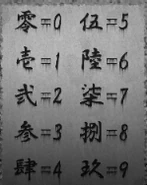 零=0
壱=1
弐=2
参=3
肆=4
伍=5
陸=6
柒=7
捌=8
玖=9